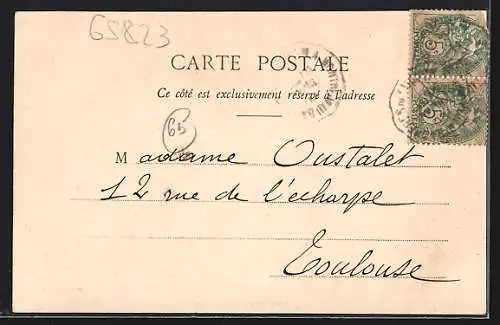 65823
CARTE POSTALE
Ce côté est exclusivement réservé à l'adresse
65
Madame Oustalet
12 rue de l'écharpe
Toulouse